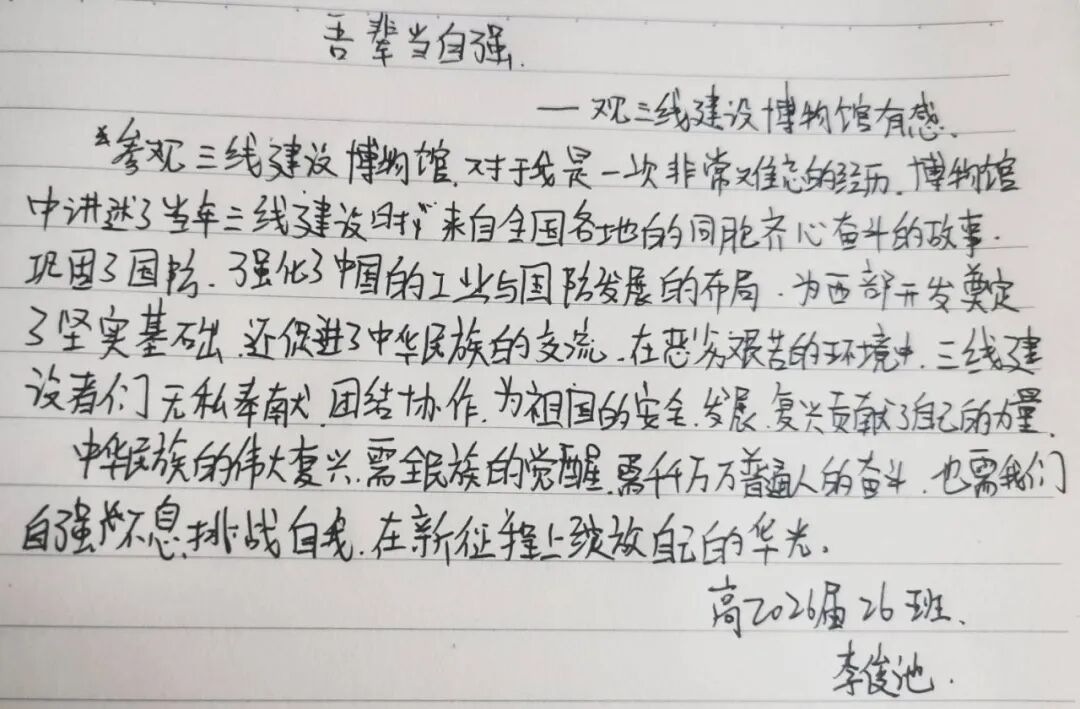 吾辈当自强.
——观三线建设博物馆有感.
参观三线建设博物馆,对于我是一次非常难忘的经历.博物馆
中讲述了当年三线建设时,来自全国各地的同胞齐心奋斗的故事.
巩固了国防.了强化了中国的工业与国防发展的布局.为西部开发奠定
了坚实基础,还促进了中华民族的交流.在恶劣艰苦的环境中,三线建
设者们无私奉献,团结协作,为祖国的安全,发展,复兴贡献了自己的力量.
中华民族的伟大复兴,需全民族的觉醒,需千千万万普通人的奋斗,也需我们
自强不息,挑战自我.在新征程上绽放自己的华光.
高2026届26班.
李俊池.